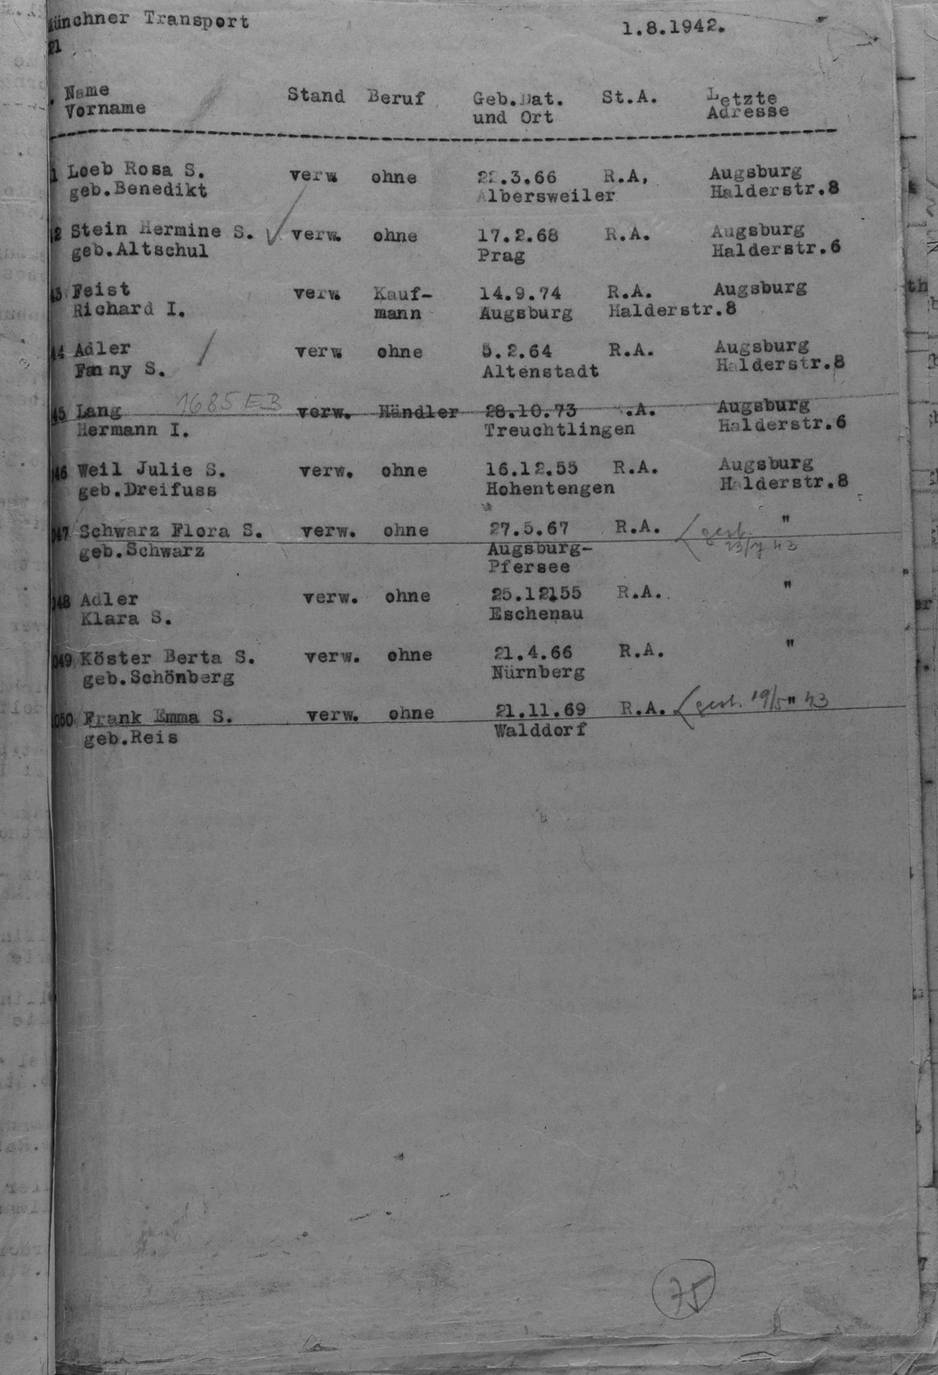 Münchner Transport 1.8.1942.
21
Name Stand Beruf Geb.Dat. St.A. Letzte
Vorname und Ort Adresse
1 Loeb Rosa S. verw. ohne 22.3.66 R.A. Augsburg
geb.Benedikt Albersweiler Halderstr.8
2 Stein Hermine S. verw. ohne 17.2.68 R.A. Augsburg
geb.Altschul Prag Halderstr.6
43 Feist verw. Kauf- 14.9.74 R.A. Augsburg
Richard I. mann Augsburg Halderstr.8
44 Adler verw ohne 5.2.64 R.A. Augsburg
Fanny S. Altenstadt Halderstr.8
45 Lang 1685 EB verw. Händler 28.10.73 .A. Augsburg
Hermann I. Treuchtlingen Halderstr.6
46 Weil Julie S. verw. ohne 16.12.55 R.A. Augsburg
geb.Dreifuss Hohentengen Halderstr.8
047 Schwarz Flora S. verw. ohne 27.5.67 R.A. gest. "
geb.Schwarz Augsburg- 43
Pfersee
048 Adler verw. ohne 25.12.55 R.A. "
Klara S. Eschenau
049 Köster Berta S. verw. ohne 21.4.66 R.A. "
geb.Schönberg Nürnberg
050 Frank Emma S. verw. ohne 21.11.69 R.A. gest. 19/5 " 43
geb.Reis Walddorf
75